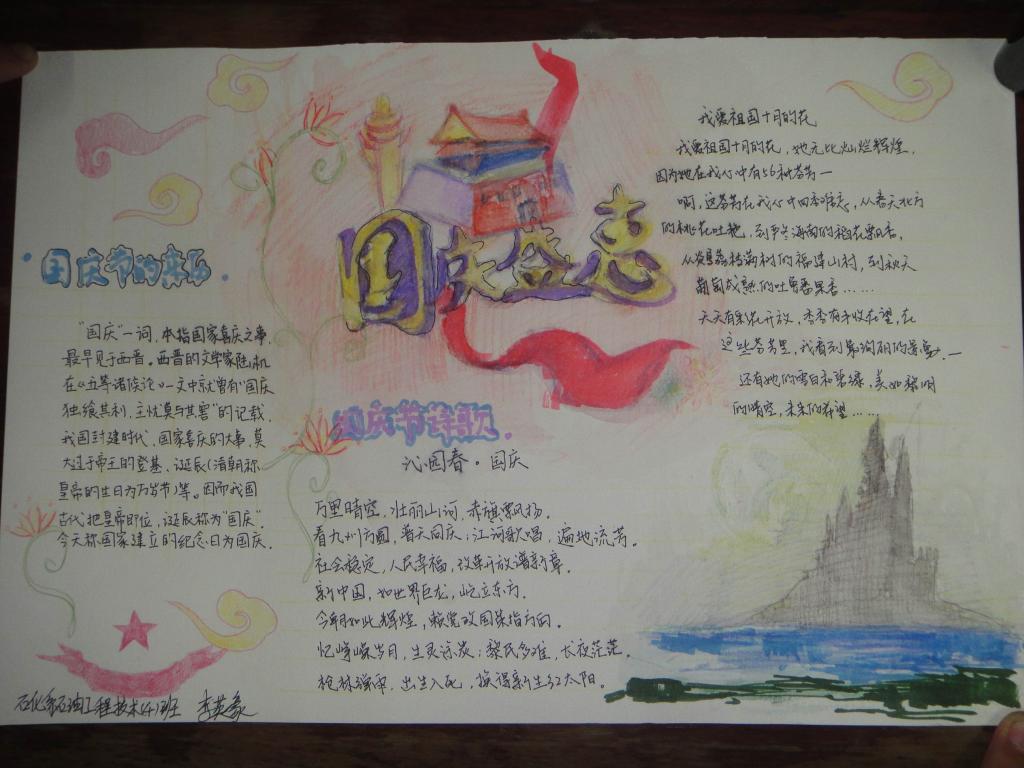 国庆盛惠
国庆节的来历
"国庆"一词，本指国家喜庆之事，
最早见于西晋。西晋的文学家陆机
在《五等诸侯论》一文中就曾有"国庆
独飨其利，主忧莫与其害"的记载，
我国封建时代、国家喜庆的大事，莫
大过于帝王的登基、诞辰（清朝称
皇帝的生日为万岁节）等。因而我国
古代把皇帝即位、诞辰称为"国庆"。
今天称国家建立的纪念日为国庆。
国庆节诗歌
沁园春·国庆
万里晴空，壮丽山河，赤旗飘扬。
看九州方圆，普天同庆，江河歌唱，遍地流芳。
社会稳定，人民幸福，改革开放谱新章。
新中国，如世界巨龙，屹立东方。
今朝如此辉煌，赖党政国策指方向。
忆峥嵘岁月，生灵涂炭；黎民多难，长夜茫茫。
枪林弹雨，出生入死，换得新生红太阳。
我爱祖国十月的花
我爱祖国十月的花，她无比灿烂辉煌，
因为她在我心中有56种芬芳—
啊，这芬芳在我心中四季难忘，从春天北方
的桃花吐艳，到严冬海南的稻花飘香，
从炎夏荔枝满树的福建山村，到秋天
葡萄成熟的吐鲁番果香……
天天有鲜花开放，季季有丰收在望，在
这些芬芳里，我看到最绚丽的景象，—
还有她的雪白和碧绿，美如黎明
的晴空，未来的希望……
石化系石油工程技术(4)班 李英豪